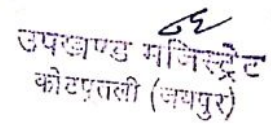 उपखण्ड मजिस्ट्रेट
कोटपुतली (जयपुर)